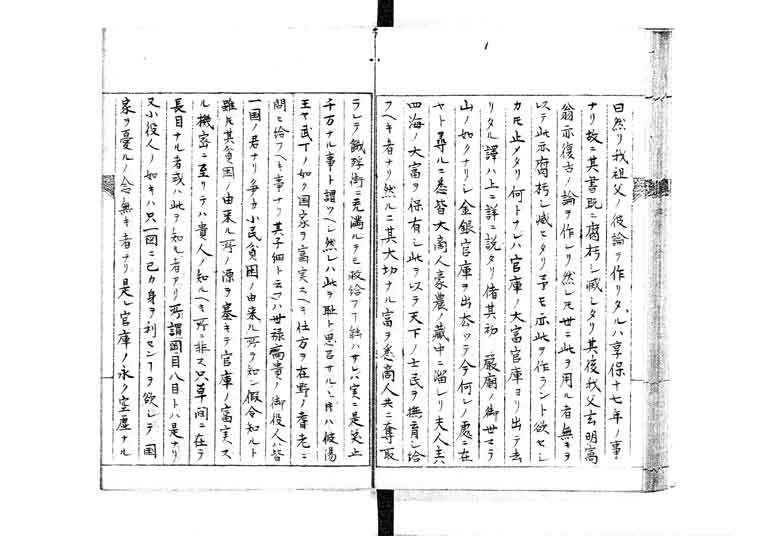 曰然リ我祖父ノ彼論ヲ作リタルハ享保十七年ノ事
ナリ故ニ其書既ニ腐朽シ滅シタリ其後我父玄明窩
翁亦復古ノ論ヲ作レリ然レ𪜈世ニ此ヲ用ル者無キヲ
以テ此亦腐朽シ滅ヒタリ予モ亦此ヲ作ラント欲セシ
カ𪜈止メタリ何トナレハ官庫ノ大富官庫ヨリ出テ去
リタル譯ハ上ニ詳ニ説タリ偖其初 嚴廟ノ御世マテ
山ノ如クナリシ金銀官庫ヲ出去ツテ今何レノ處ニ在
ヤト尋ルニ悉皆大商人豪農ノ藏中ニ溜レリ夫人主
四海ノ大富ヲ保有シ此ヲ以テ天下ノ士民ヲ撫育シ給
フヘキ者ナリ然ルニ其大切ナル富ヲ悉商人共ニ奪取
ラレテ餓殍街ニ充満ルヲモ救給フヿ能ハサルハ実ニ是笑止
千万ナル事ト謂ツヘシ然レハ此ヲ恥ト思召サル丶片ハ彼湯
王ヤ武丁ノ如ク国家ヲ富実スヘキ仕方ヲ在野ノ耆老ニ
問ヒ給フヘキ事ナリ其子細ト云フハ世禄高貴ノ御役人ハ皆
一国ノ君ナリ争カ小民貧困ノ由来ル所ヲ知ン假令知ルト
雖𪜈其貧困ノ由来ル所ノ源ヲ塞キテ官庫ノ富実ス
ル機密ニ至リテハ貴人ノ知ルヘキ所ニ非ス只草間ニ在テ
長目ナル者或ハ此ヲ知ル者アリ所謂岡目八目トハ是ナリ
又小役人ノ如キハ只一図ニ己カ身ヲ利センヿヲ欲シテ国
家ヲ憂ルノ念無キ者ナリ是レ官庫ノ永ク空虚ナル